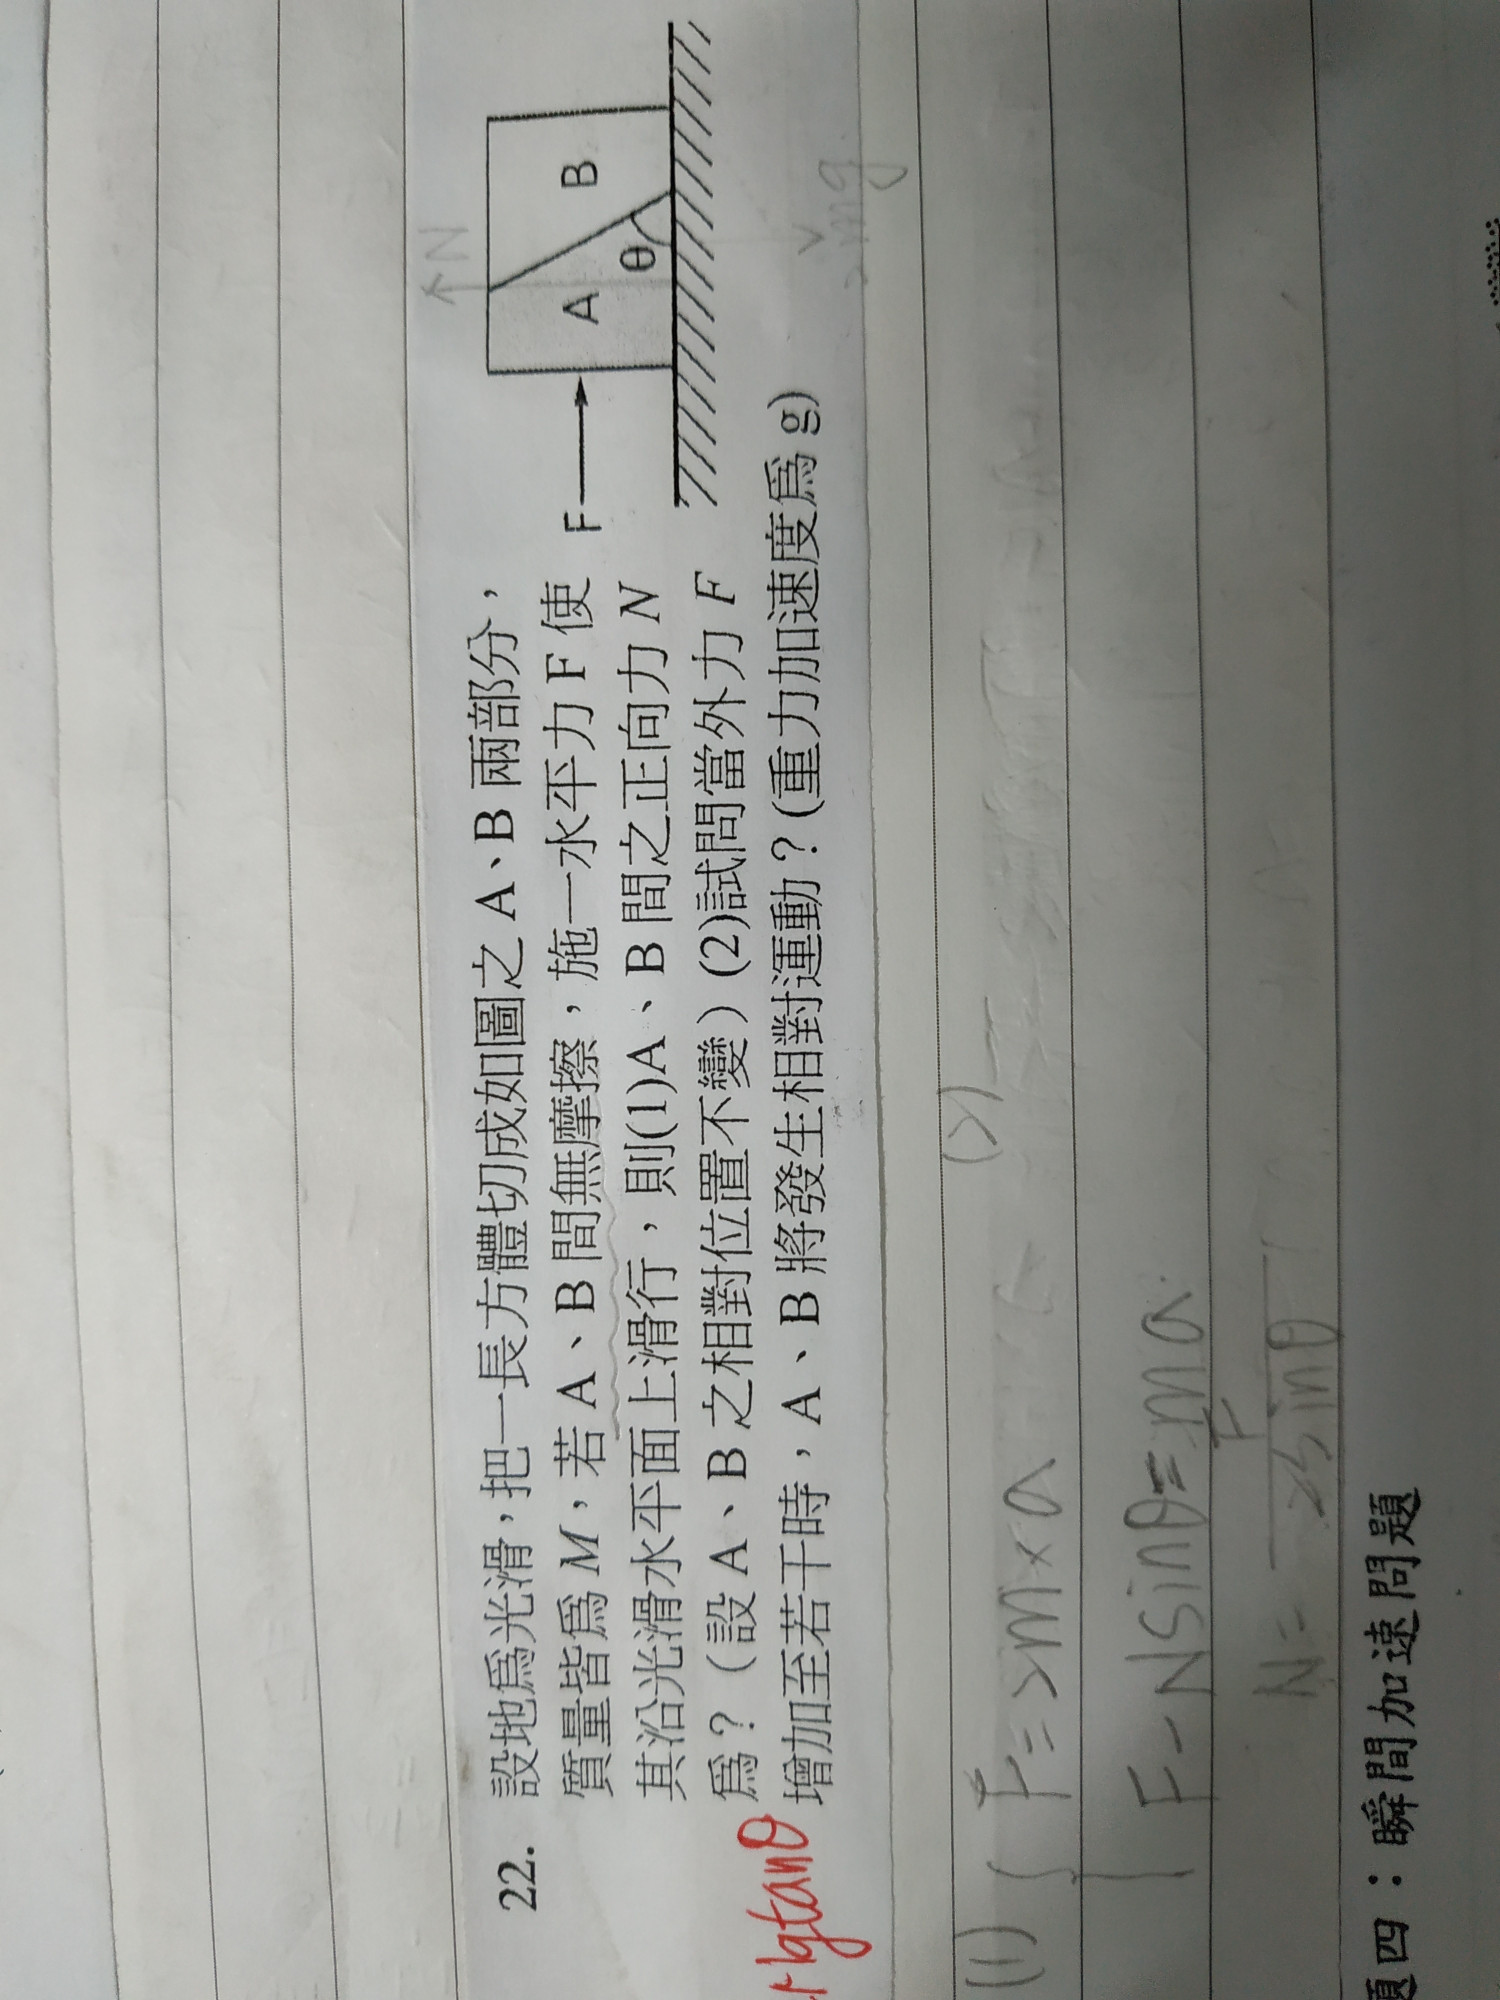 22. 設地為光滑，把一長方體切成如圖之 A、B 兩部分，
質量皆為 M，若 A、B 間無摩擦，施一水平力 F 使
其沿光滑水平面上滑行，則(1)A、B 間之正向力 N
為？（設 A、B 之相對位置不變）(2)試問當外力 F
增加至若干時，A、B 將發生相對運動？(重力加速度為 g)
F
A
B
θ
N
2mg
gtanθ
(1) F=2m×a
(2)
F-Nsinθ=ma
N=F/2sinθ
題四：瞬間加速問題